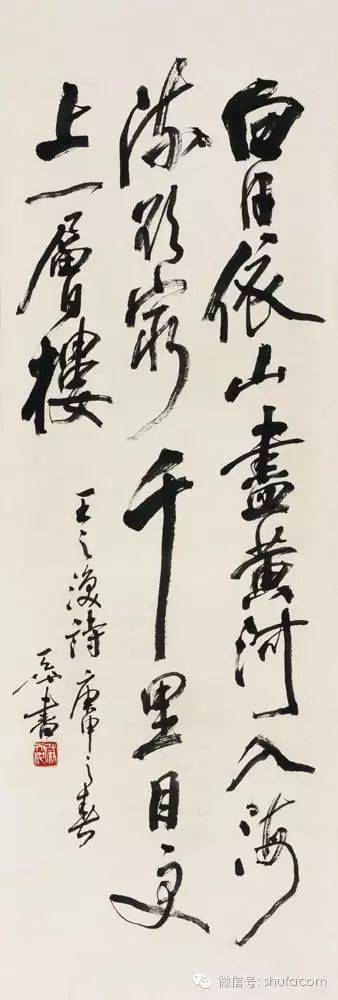 白日依山盡黄河入海
流欲窮千里目更
上一層樓
王之渙詩庚申之春
書
微信号: shufacom